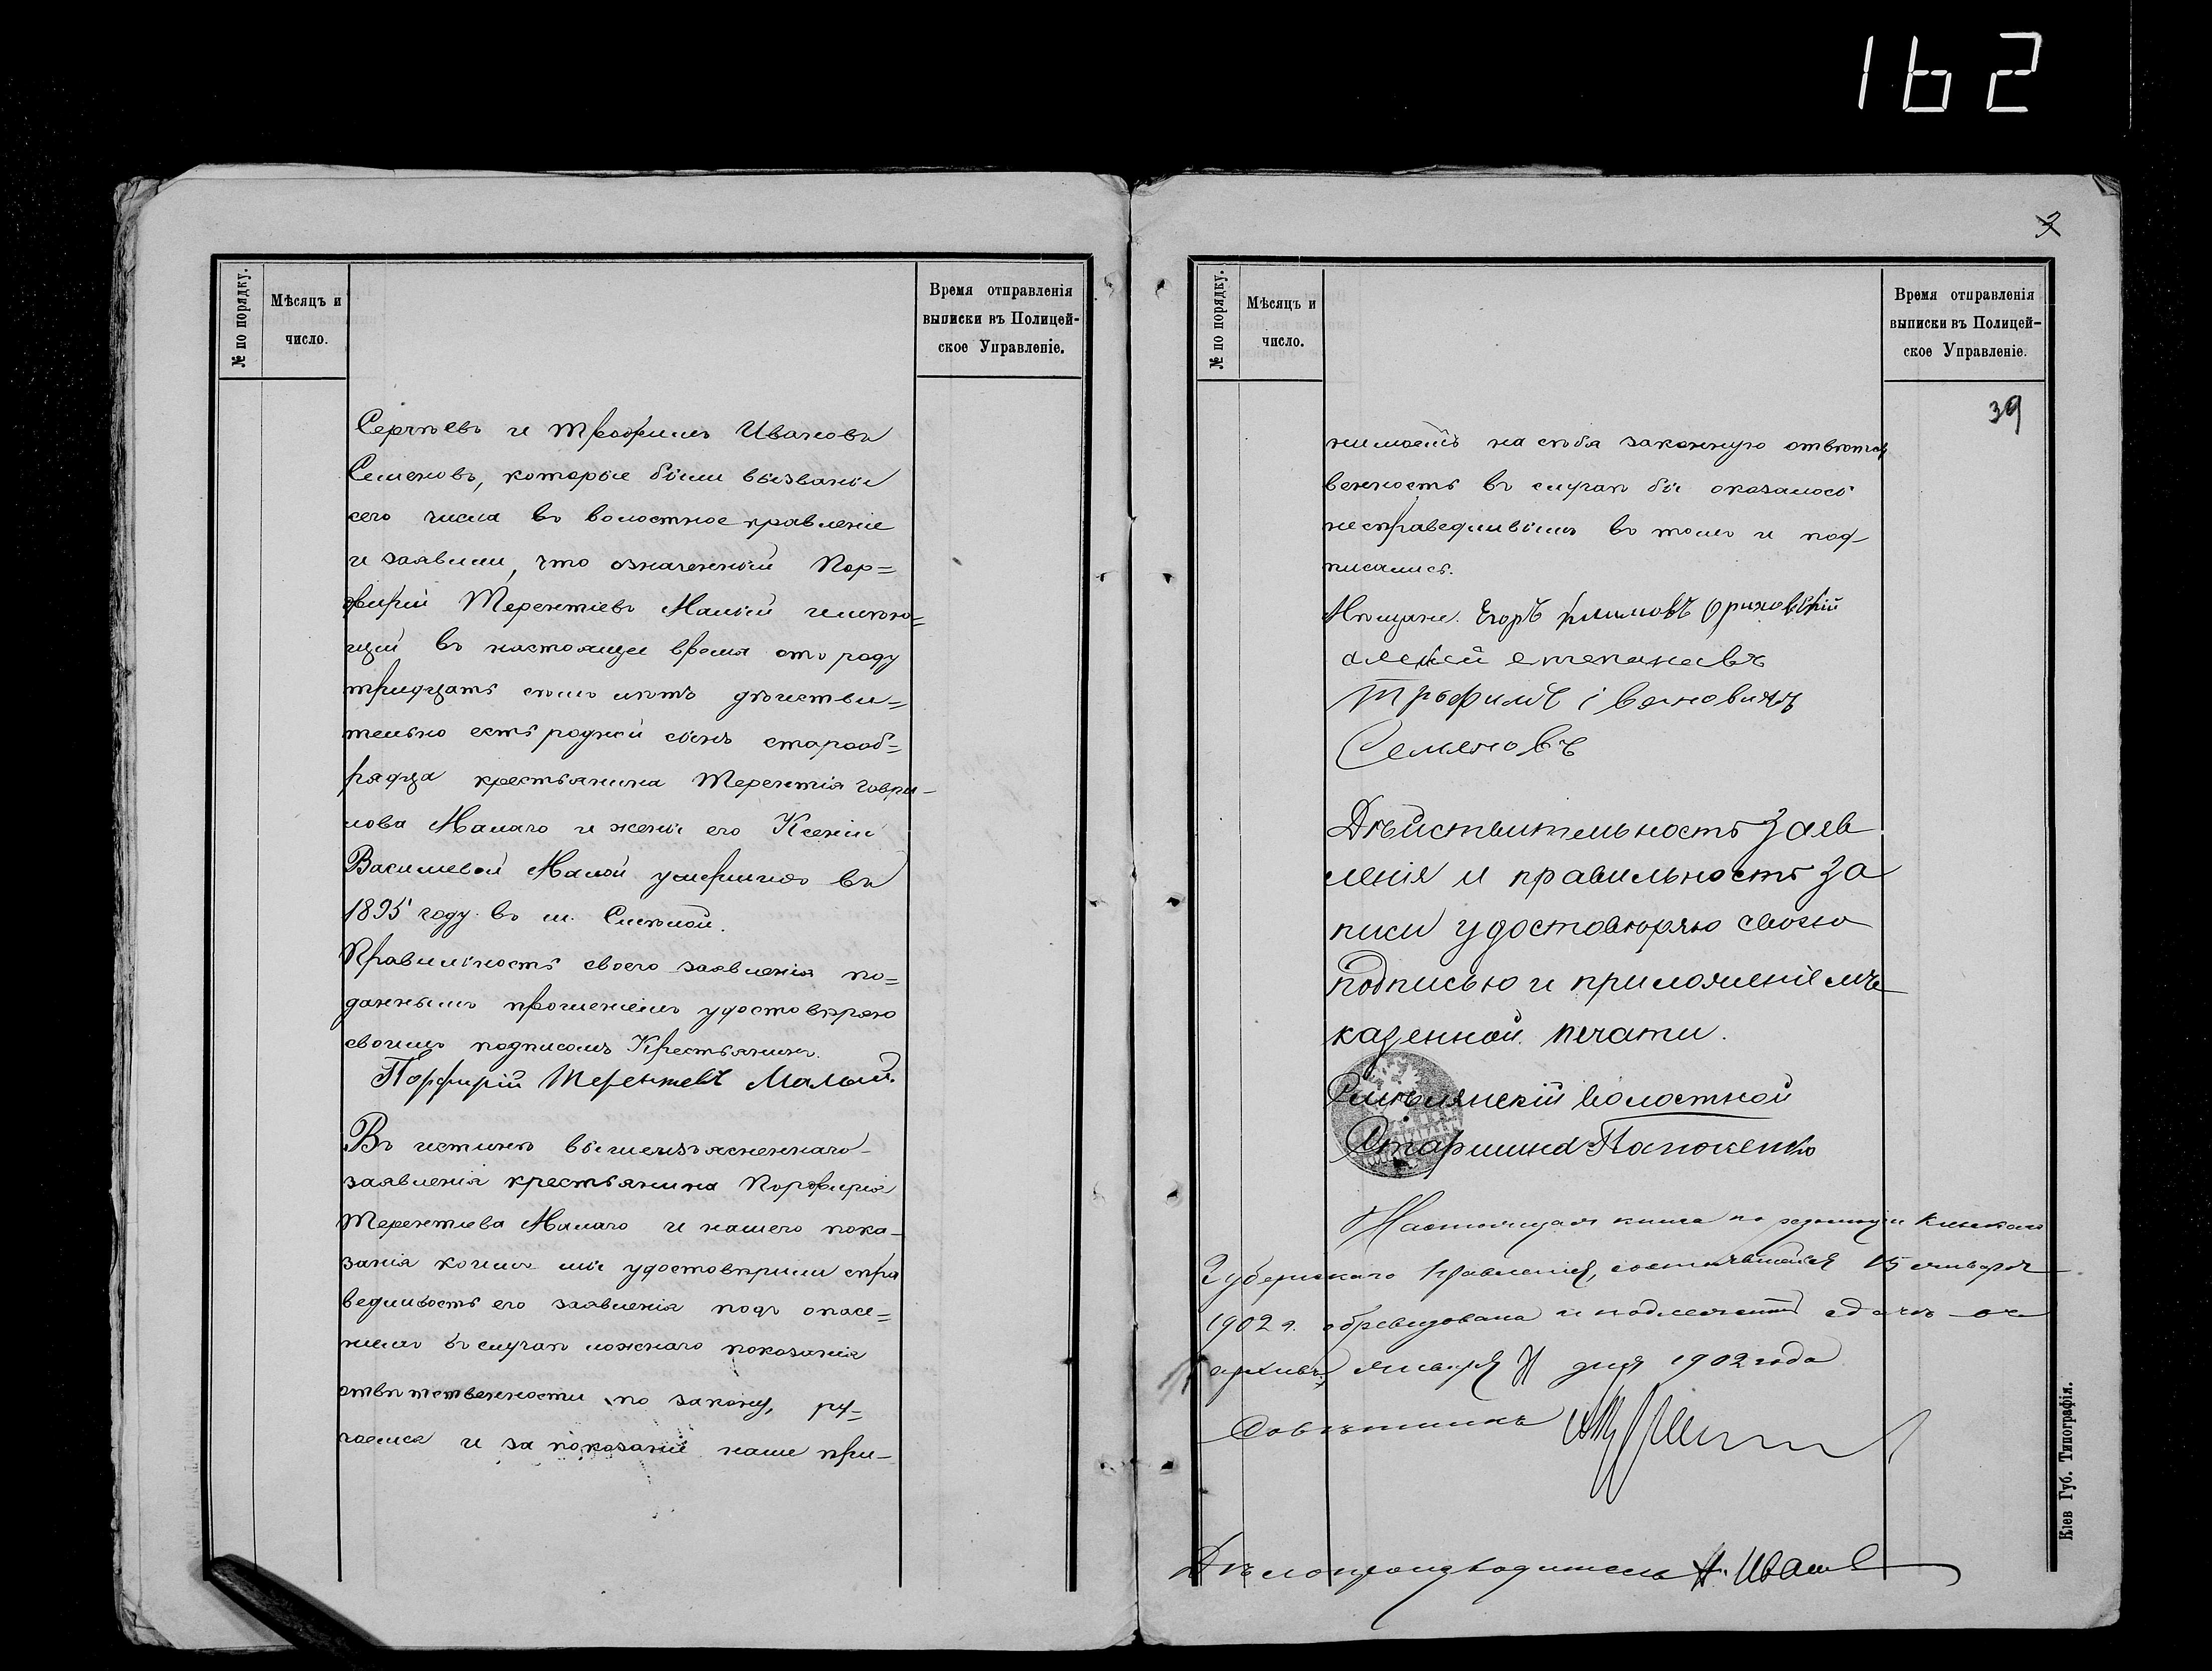 162
3
№ по порядку.
Мѣсяцъ и
число.
Время отправленія
выписки въ Полицей-
ское Управленіе.
Сергѣевъ и Трофимъ Ивановъ
Семеновъ, которые были вызваны
сего числа въ волостное правленіе
и заявили, что означенный Пор=
фирій Терентіевъ Малый имѣю=
щій въ настоящее время отъ роду
тридцать семь лѣтъ дѣйстви=
тельно есть родной сынъ старооб=
рядца крестьянина Терентія Гаври-
лова Малаго и жены его Ксеніи
Василіевой Малой умершихъ въ
1895 году въ м.
Правильность своего заявленія по=
даннымъ прошеніемъ удостовѣряю
своимъ подписомъ Крестьянинъ.
Порфирій Терентевъ Малый.
Въ истинѣ вышеизъясненнаго
заявленія крестьянина Порфирія
Терентіева Малаго и нашего пока-
занія коимъ мы удостовѣрили спра
ведливость его заявленія подъ опасе=
ніемъ въ случаѣ ложнаго показанія
отвѣтственности по закону, ру=
чаемся и за показаніе наше при-
№ по порядку.
Мѣсяцъ и
число.
Время отправленія
выписки въ Полицей-
ское Управленіе.
39
нимаемъ на себя законную отвѣтст
венность въ случаѣ бы оказалось
несправедливымъ въ томъ и под-
писались.
Мѣщане. Егоръ Климовъ
Трофимъ івановичъ
Семеновъ
Дѣйствительность заяв
ленія и правильность за
писи удостовѣряю своею
подписью и приложеніемъ
казенной печати.
волостной
Старшина
Настоящая книга по резолюціи Кіевскаго
Губернскаго Правленія, состоявшейся 15 января
1902 г. обревизована и подлежитъ сдачѣ въ
архивъ, января дня 1902 года
Совѣтникъ
Дѣлопроизводитель
Кіев Губ. Типографія.